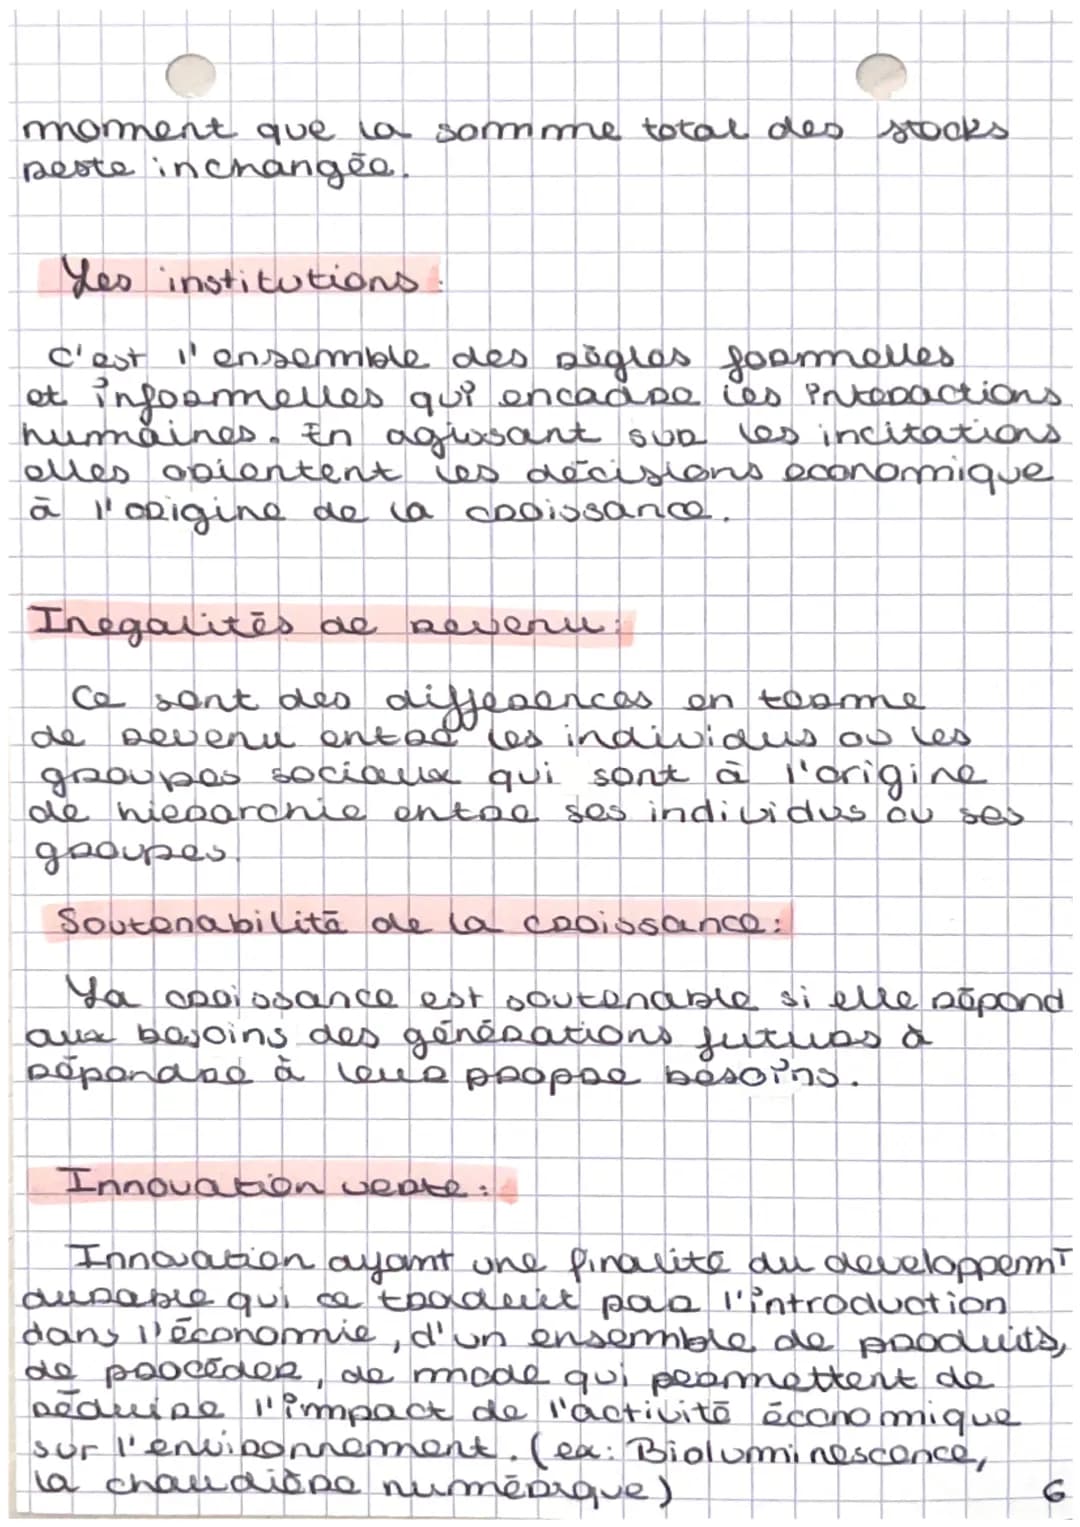 moment que la somme total des stocks
reste inchangée.
Les institutions :
C'est l'ensemble des règles formelles
et informelles qui encadre les interactions
humaines. En agissant sur les incitations
elles orientent les décisions economique
à l'origine de la croissance.
Inégalités de revenu :
Ce sont des differences en terme
de revenu entre les individus ou les
groupes sociaux qui sont à l'origine
de hierarchie entre ses individus ou ses
groupes.
Soutenabilité de la croissance :
La croissance est soutenable si elle répond
aux besoins des générations futures à
répondre à leur propre besoins.
Innovation verte :
Innovation ayant une finalité du developpemT
durable qui ce traduit par l'introduction
dans l'économie, d'un ensemble de produits,
de procéder, de mode qui permettent de
réduire l'impact de l'activité économique
sur l'environnement. (ex: Bioluminescence,
la chaudière numérique)
6